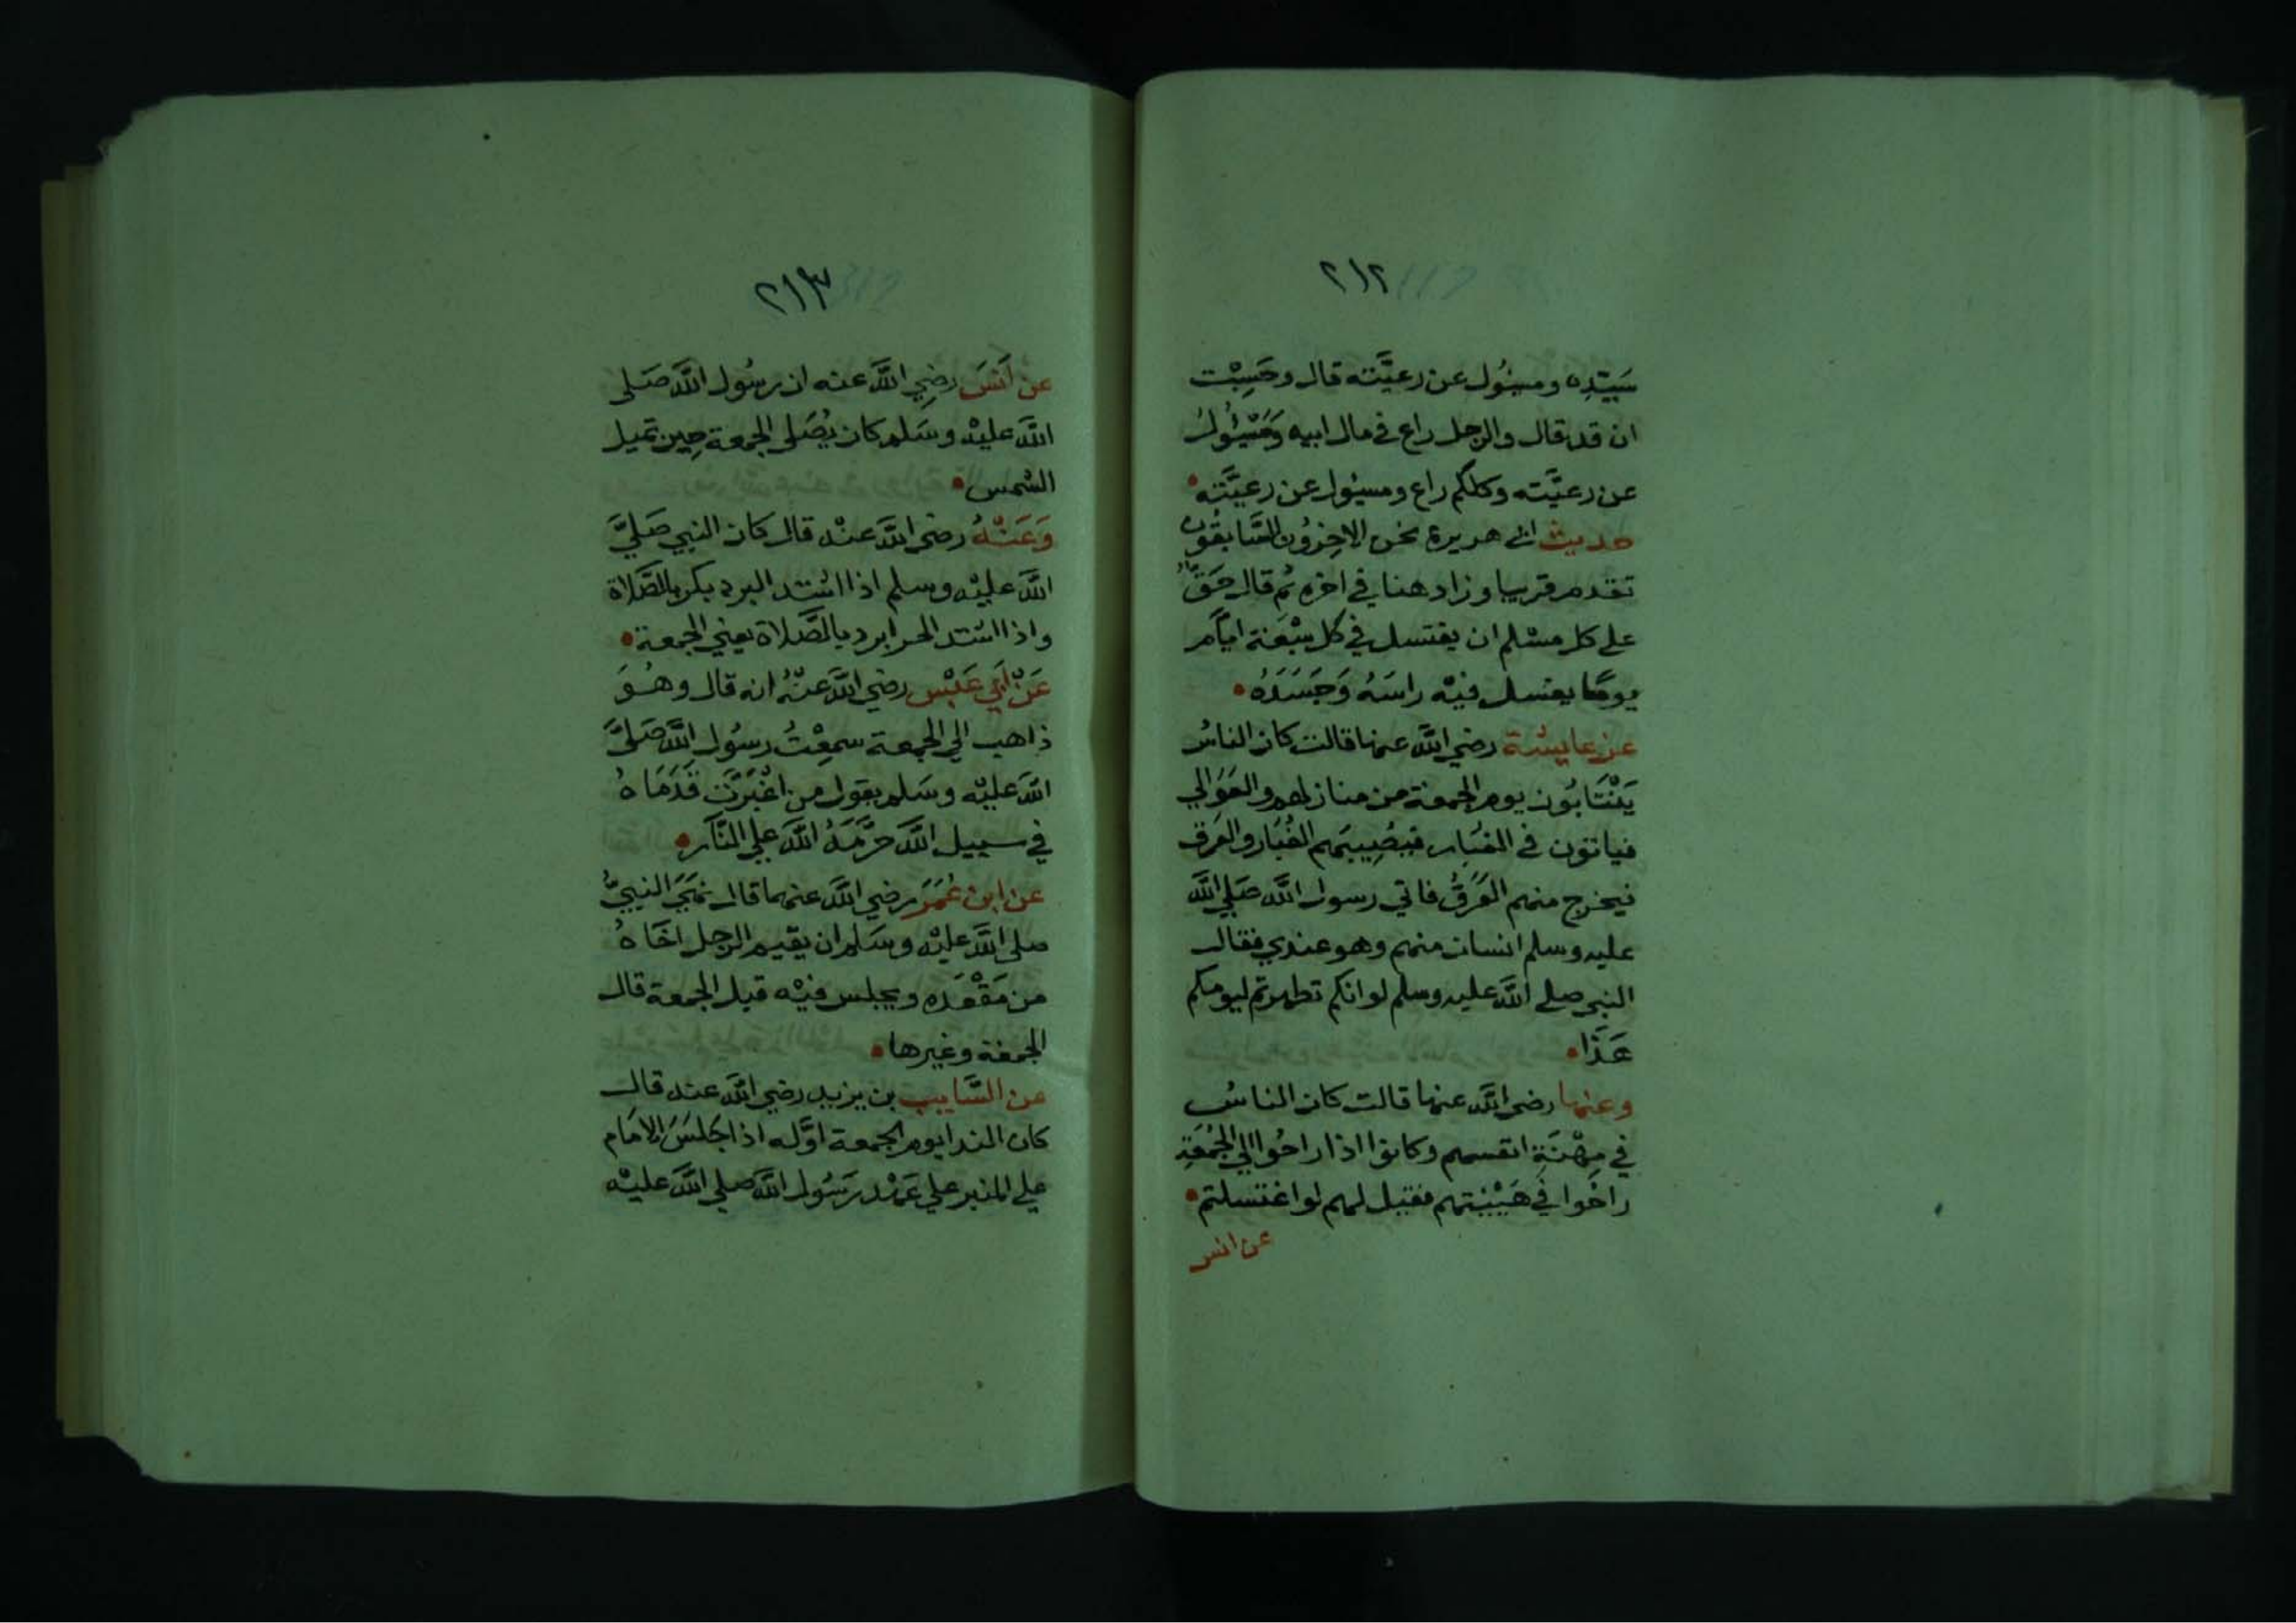 ٢١٢
سَيّدِه ومسئول عن رعيَّته قال وحَسِبْت
ان قد قال والرجل راع في مال ابيه وَمَسْئُولُ
عن رعيَّته وكلكم راع ومسئول عن رعيَّته
حديث ابي هريرة نحن الاخِرُون السَّابقُون
تقدم قريبا وزاد هنا في اخره ثم قال حَقٌّ
على كل مسْلم ان يغتسل في كل سَبْعَة ايام
يومًا يغسل فيْه راسَهُ وَجَسَدَهُ
عن عايشة رضي الله عنها قالت كان الناسُ
يَنْتَابُون يوم الجمعة من منازلهم والعَوَالي
فياتون في الغبَار فيُصِيبهم الغُبَار والعَرق
فيخرج منهم العَرَقُ فاتي رسول الله صَلي الله
عليه وسلم انسان منهم وهو عندي فقال
النبي صلي الله عليه وسلم لو انكم تطهرتم ليومكم
هَذَا
وعنها رضي الله عنها قالت كان الناسُ
في مِهْنَةِ انفسهم وكانوا اذا راحُوا الي الجُمُعَةِ
راحُوا في هَيْئتهم فقيل لهم لو اغتسلتم
عن انس
٢١٣
عن اَنَسَ رضِي الله عنه ان رسُول الله صَلى
الله عليْه وسَلم كان يُصَلى الجمعة حِين تميل
الشمس
وَعَنْهُ رضي الله عنْه قال كان النبي صَليَّ
الله عليْه وسلم اذا اشتد البرد بكر بالصَّلاة
واذا اشتد الحر ابرد بالصَّلاة يعني الجمعة
عَنْ اَبي عَبْس رضي الله عنْهُ انه قال وهُوَ
ذاهب الي الجمعة سمعْتُ رسُول الله صَليَّ
الله عليْه وسَلم يقول من اغْبَرَّت قَدَمَاهُ
في سبيل الله حَرَّمَهُ الله علي النَّار
عن ابن عُمَرَ رضي الله عنهما قال نهَيَ النبيُّ
صلي الله عليْه وسَلم ان يقيم الرجل اخَاهُ
من مَقْعَده ويجلس فيْه قيل الجمعة قال
الجمعة وغيرها
عن السَّايب بن يزيد رضي الله عنه قال
كان الندا يوم الجمعة اوَّله اذا جَلسَ الامَام
على المنبر علي عَهْد رسُول الله صلي الله عليْه